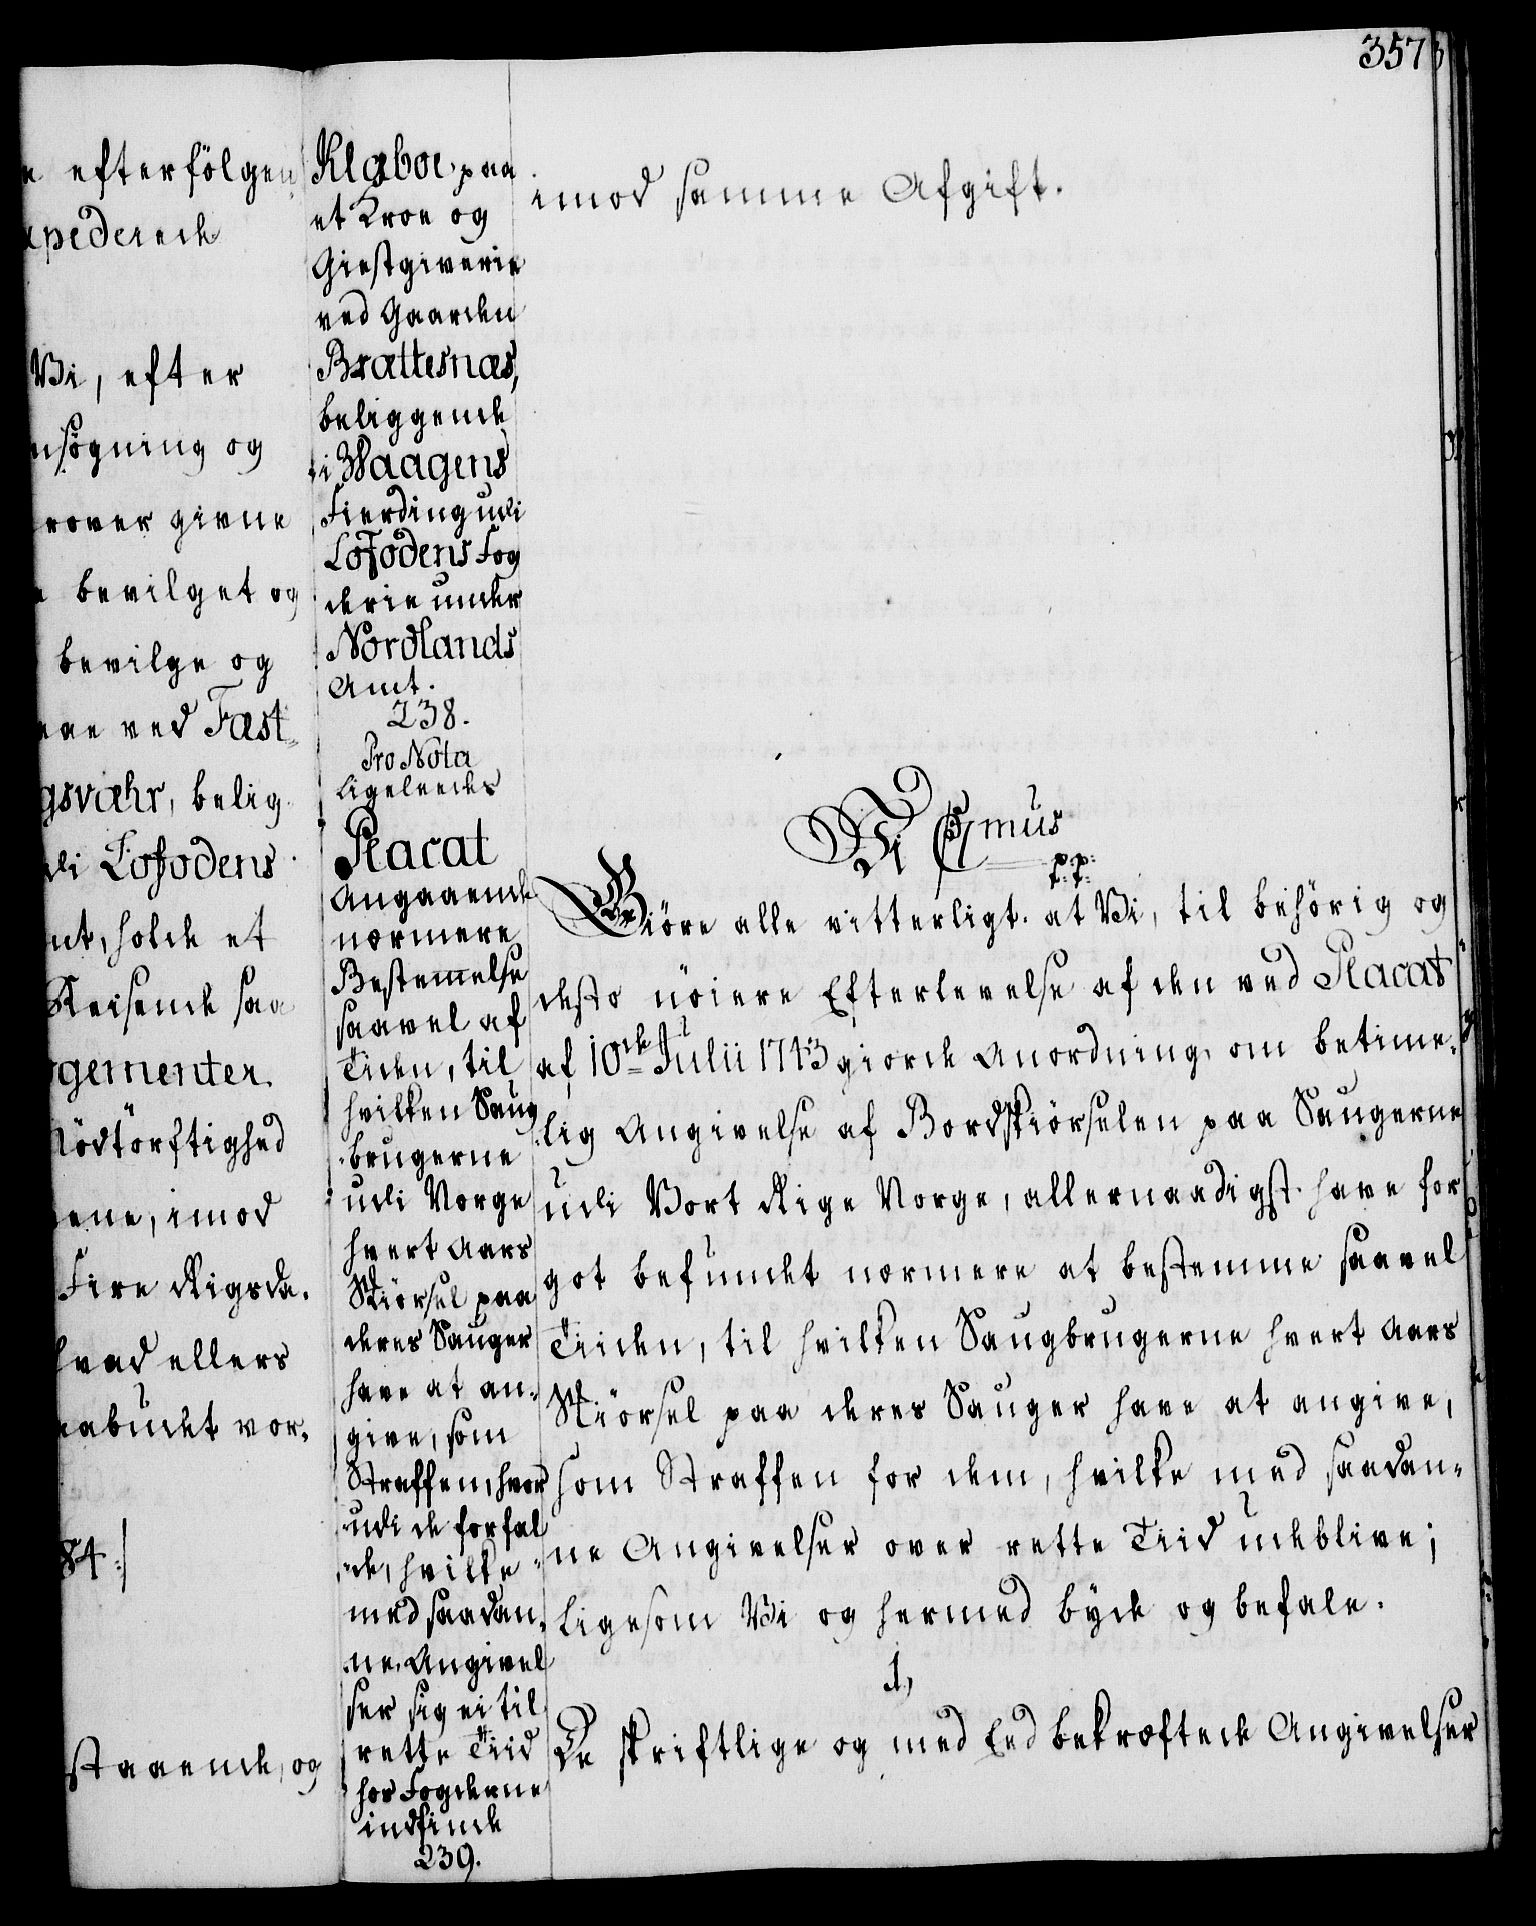 357
e efterfölgen
xpederede
Vi, efter
nsøgning og
rover givne
e bevilget og
bevilge og
ene ved Fast-
gsvæhr, belig-
di Lofodens
mt, holde et
Reisende saa
rgementer
Nödtörftighed
ene, imod
Fire Rigsda-
hvad ellers
aabudet vor-
84:/
staaende, og
Klæboe paa
et Kroe og
Giestgiverie
ved Gaarden
Brættesnæs,
beliggende
i Waagens
Fierding udi
Lofodens Fog
derie under
Nordlands
Amt.
238.
Pro Nota
Ligeledes
Placat
Angaaende
nærmere
Bestemelse
saavel af
Tiden, til
hvilken Saug
brugerne
udi Norge
hvert Aars
Skiörsel paa
deres Sauger
have at an-
give, som
Straffen, hvor
udi de forfal
de, hvilke
med saadan-
ne Angivel
ser sig ei til
rette Tiid
hos Fogderne
indfinde
239.
imod samme Afgift.
Vi C 7mus
p:p:
t:t:
Giöre alle vitterligt. at Vi, til behörig og
desto nöiere Efterlevelse af den ved Placat
af 10de Julii 1743 giorde Anordning, om betime-
lig Angivelse af Bordskiörselen paa Saugerne
udi Vort Rige Norge, allernaadigst have for
got befundet nærmere at bestemme saavel
Tiiden, til hvilken Saugbrugerne hvert Aars
Skiörsel paa deres Sauger have at angive,
som Straffen for dem, hvilke med saadan-
ne Angivelser over rette Tiid udeblive;
Ligesom Vi og hermed byde og befale.
1,
De skriftlige og med Eed bekræftede Angivelser